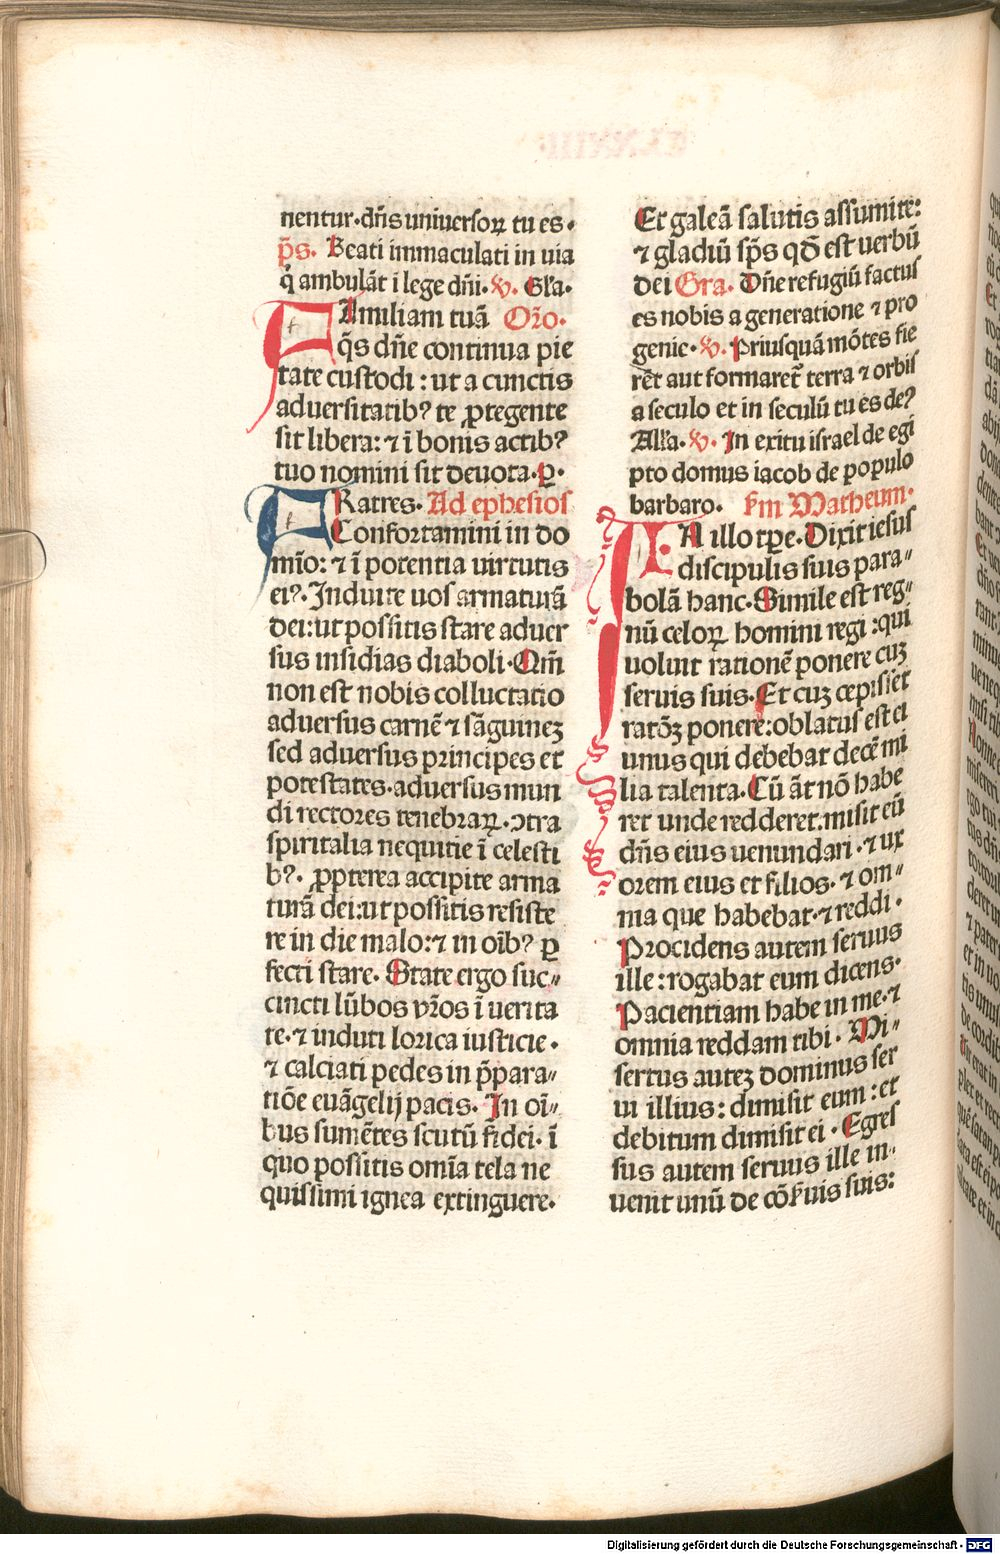 nentur·dn̄s universoꝝ tu es·
p̄s. Beati immaculati in uia
q̄ ambulāt ī lege dn̄i. ꝟ. Gl'a.
FAmiliam tuā Or̄o.
q̄s dn̄e continua pie
tate custodi : ut a cunctis
adversitatibꝰ te ꝓtegente
sit libera: ⁊ ī bonis actibꝰ
tuo nomini sit devota. ꝑ.
FRatres. Ad ephesios
Confortamini in do
mīo: ⁊ ī potentia uirtutis
eiꝰ. Induite uos armaturā
dei: ut possitis stare adver
sus insidias diaboli. Qm̄
non est nobis colluctatio
adversus carnē ⁊ sāguineꝫ
sed adversus principes et
potestates. adversus mun
di rectores tenebraꝝ. ꝯtra
spiritalia nequitie ī celesti
bꝰ. ꝓpterea accipite arma
turā dei: ut possitis resiste
re in die malo: ⁊ in oīb̄ꝰ ꝑ
fecti stare. State ergo suc⸗
cincti lūbos vr̄os ī uerita
te. ⁊ induti lorica iusticie.
⁊ calciati pedes in p̄para⸗
tiōe euāgelij pacis. In oī⸗
bus sumētes scutū fidei. ī
quo possitis omīa tela ne
quissimi ignea extinguere.
Et galeā salutis assumite:
⁊ gladiū sp̄s qd̄ est verbū
dei Gra. Dn̄e refugiū factus
es nobis a generatione ⁊ pro
genie. ꝟ. Priusquā mōtes fie
rēt aut formaret̄ terra ⁊ orbis
a seculo et in seculū tu es deꝰ
All'a. ꝟ. In exitu israel de egi
pto domus iacob de populo
barbaro. Sm̄ Matheum.
IN illo tp̄e. Dixit iesus
discipulis suis para⸗
bolā hanc. Simile est reg⸗
nū celoꝝ homini regi : qui
uoluit rationē ponere cuꝫ
servis suis. Et cuꝫ cepissēt
ratōꝫ ponere: oblatus est ei
unus qui debebat decē mi
lia talenta. Cū āt nō habe
ret unde redderet. misit eū
dn̄s eius uenundari. ⁊ ux
orem eius et filios. ⁊ om⸗
nia que habebat. ⁊ reddi.
Procidens autem servus
ille : rogabat eum dicens.
Pacientiam habe in me. ⁊
omnia reddam tibi. Mi⸗
sertus auteꝫ dominus ser
ui illius : dimisit eum : et
debitum dimisit ei. Egres
sus autem servus ille in⸗
venit unū de cōservis suis:
Digitalisierung gefördert durch die Deutsche Forschungsgemeinschaft - DFG